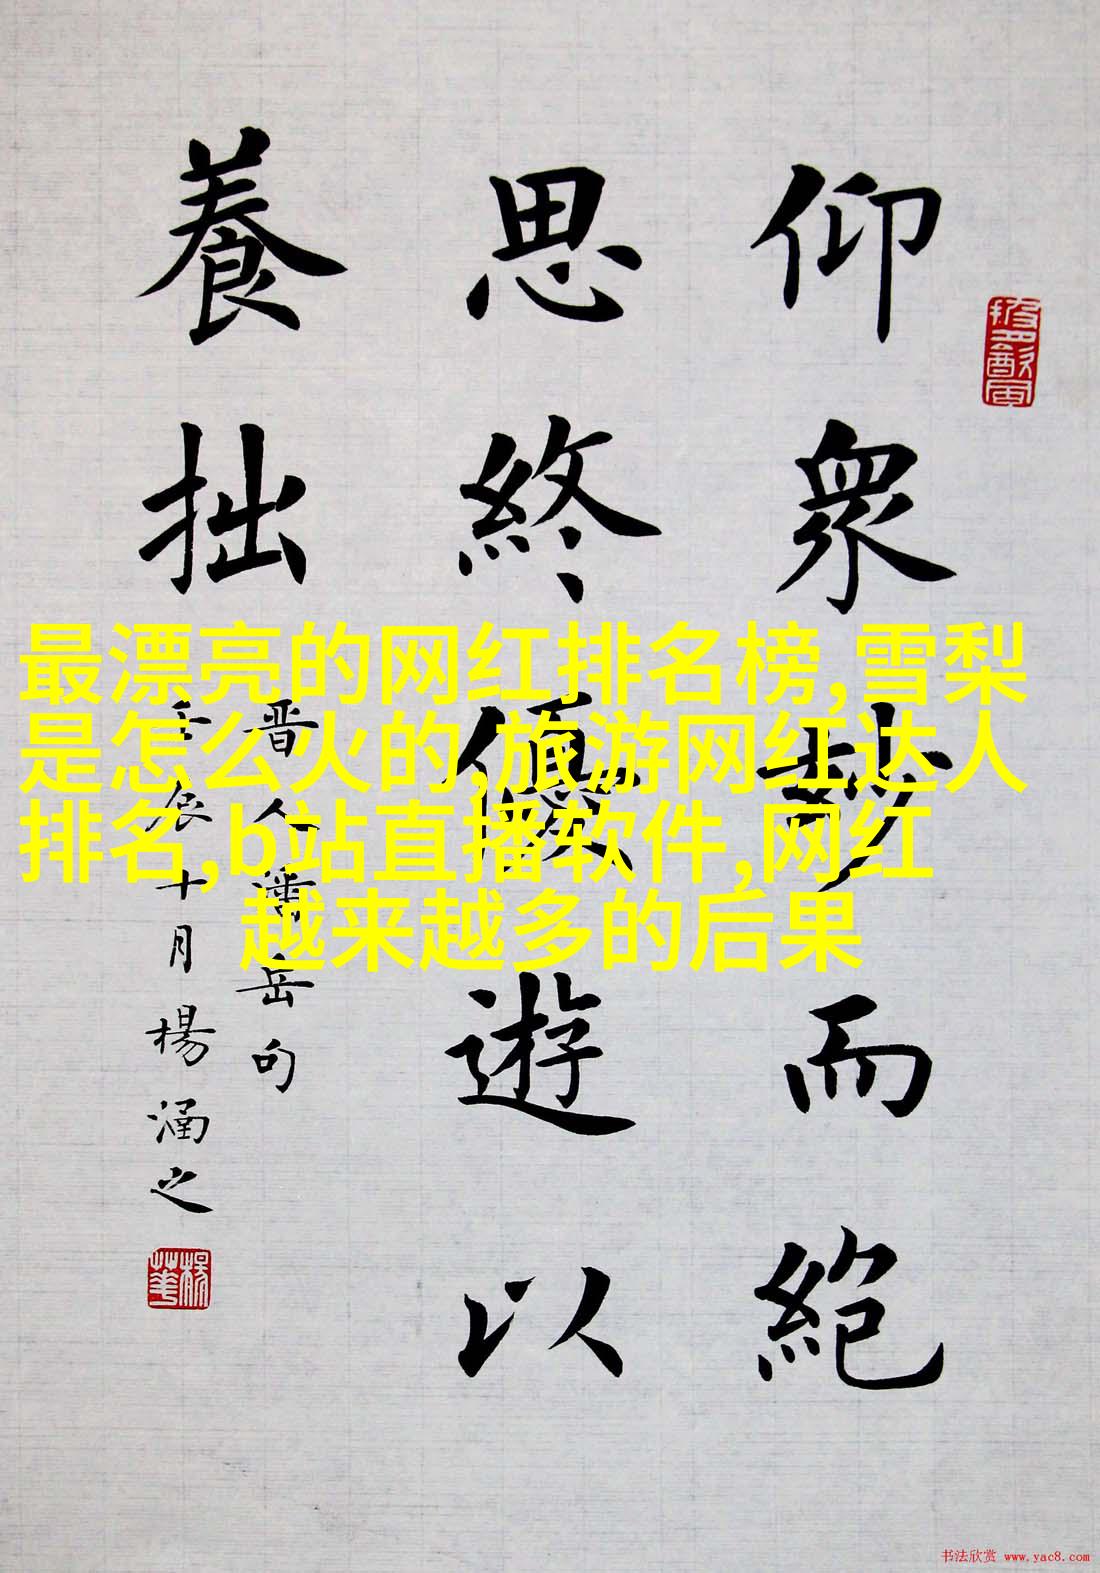 仰眾妙而絕
思終優遊以
養拙
晉人潘岳句
壬辰十月楊涵之
最漂亮的网红排名榜,雪梨
是怎么火的,旅游网红达人
排名,b站直播软件,网红
越来越多的后果
书法欣赏 www.yac8.com